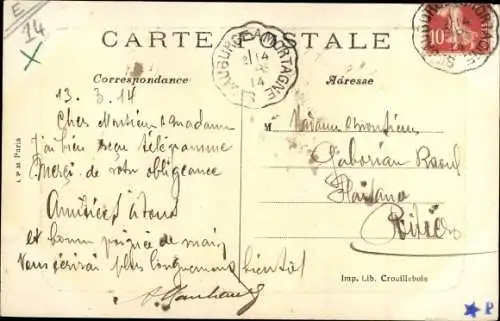 E
14
CARTE POSTALE
Correspondance
Adresse
10
14
13. 3. 14
Cher Monsieur & madame
J'ai bien reçu télégramme
Merci de votre obligeance
Amitiés à tous
et bonne poignée de main
Vous écrirai plus longuement bientôt
M
Madame & monsieur
Gaborian Raoul
Poitiers
Paris
Imp. Lib. Crouillebois
P